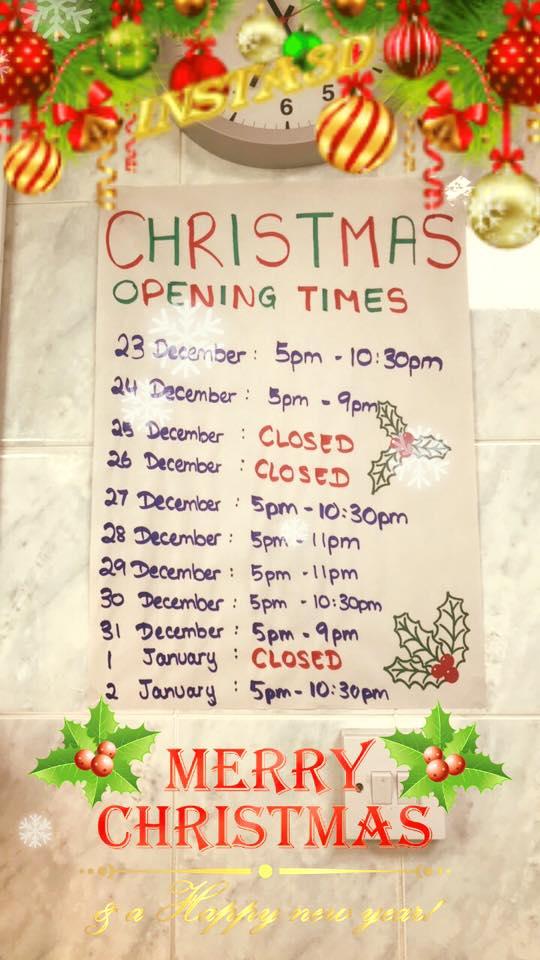 INSTA3D
6 5
CHRISTMAS
OPENING TIMES
23 December : 5pm - 10:30pm
24 December : 5pm - 9pm
25 December : CLOSED
26 December : CLOSED
27 December : 5pm - 10:30pm
28 December : 5pm - 11pm
29 December : 5pm - 11pm
30 December : 5pm - 10:30pm
31 December : 5pm - 9pm
1 January : CLOSED
2 January : 5pm - 10:30pm
MERRY
CHRISTMAS
& a Happy new year!